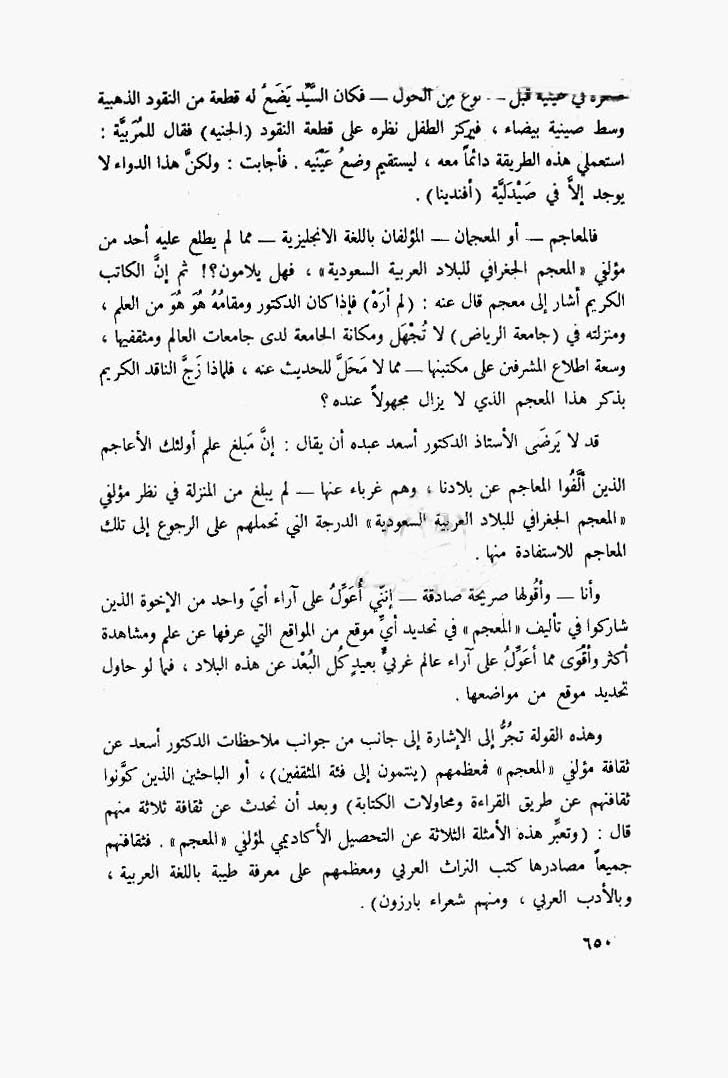 صغره في عينيه قبل — نوع مِن الحول — فكان السَّيِّد يَضَعُ له قطعة من النقود الذهبية
وسط صينية بيضاء ، فيركز الطفل نظره على قطعة النقود (الجنيه) فقال للمُرَبيَّة :
استعملي هذه الطريقة دائماً معه ، ليستقيم وضعُ عَيْنَيه . فأجابت : ولكنَّ هذا الدواء لا
يوجد إلاَّ في صَيْدَليَّة (أفندينا) .
فالمعاجم — أو المعجمان — المؤلفان باللغة الانجليزية — مما لم يطلع عليه أحد من
مؤلفي «المعجم الجغرافي للبلاد العربية السعودية» ، فهل يلامون؟! ثم إنَّ الكاتب
الكريم أشار إلى معجم قال عنه : (لم أرَهْ) فإذا كان الدكتور ومقامُهُ هُوَ هُوَ من العلم ،
ومنزلته في (جامعة الرياض) لا تُجْهَل ومكانة الجامعة لدى جامعات العالم ومثقفيها ،
وسعة اطلاع المشرفين على مكتبتها — مما لا مَحَلَّ للحديث عنه ، فلماذا زَجَّ الناقد الكريم
بذكر هذا المعجم الذي لا يزال مجهولاً عنده؟
قد لا يَرضَى الأستاذ الدكتور أسعد عبده أن يقال : إنَّ مَبلغ علم أولئك الأعاجم
الذين ألَّفُوا المعاجم عن بلادنا ، وهم غرباء عنها — لم يبلغ من المنزلة في نظر مؤلفي
«المعجم الجغرافي للبلاد العربية السعودية» الدرجة التي تحملهم على الرجوع إلى تلك
المعاجم للاستفادة منها .
وأنا — وأقُولها صريحة صادقة — إنَّني أُعَوِّلُ على آراء أيّ واحد من الإخوة الذين
شاركوا في تأليف «المعجم» في تحديد أيِّ موقع من المواقع التي عرفها عن علم ومشاهدة
أكثر وأقْوَى مما أعَوِّلُ على آراء عالم غربيٍّ بعيدٍ كُل البُعْد عن هذه البلاد ، فيما لو حاول
تحديد موقع من مواضعها .
وهذه القولة تجُرُّ إلى الإشارة إلى جانب من جوانب ملاحظات الدكتور أسعد عن
ثقافة مؤلفي «المعجم» فمعظمهم (ينتمون إلى فئة المثقفين) ، أو الباحثين الذين كوَّنوا
ثقافتهم عن طريق القراءة ومحاولات الكتابة) وبعد أن تحدث عن ثقافة ثلاثة منهم
قال : (وتعبِّر هذه الأمثلة الثلاثة عن التحصيل الأكاديمي لمؤلفي «المعجم» . فثقافتهم
جميعاً مصادرها كتب التراث العربي ومعظمهم على معرفة طيبة باللغة العربية ،
وبالأدب العربي ، ومنهم شعراء بارزون) .
٦٥٠